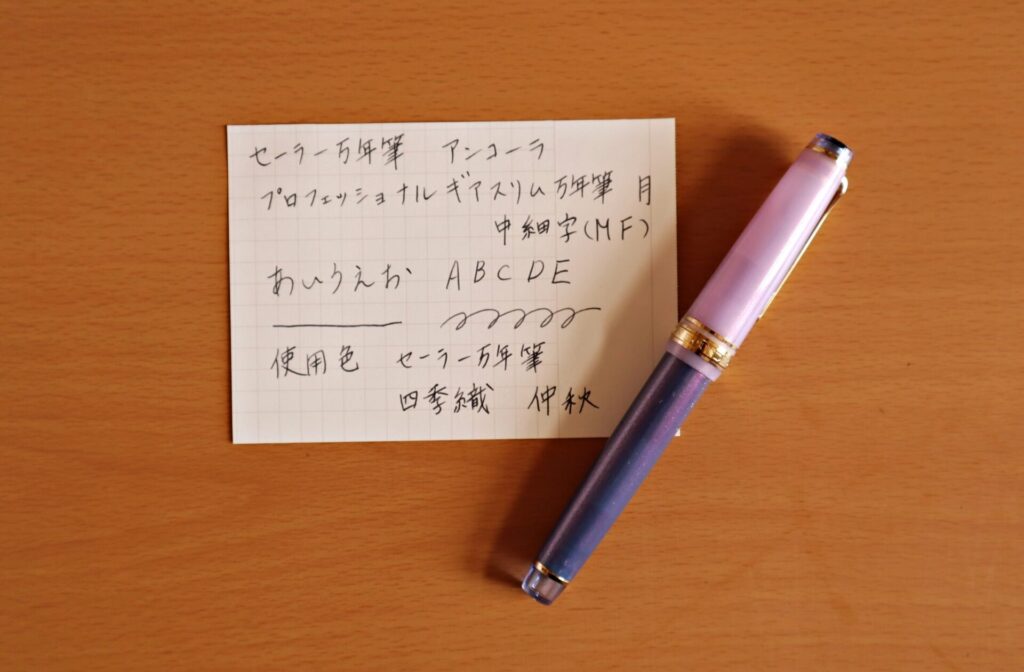 セーラー万年筆 アンコーラ
プロフェッショナルギアスリム万年筆 月
中細字(MF)
あいうえお ABCDE
使用色 セーラー万年筆
四季織 仲秋